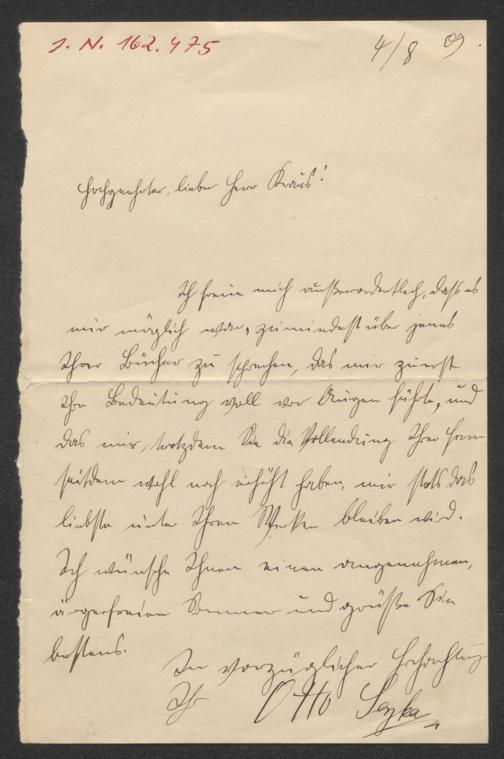 J. N. 162.475
4/8 09.
Hochgeehrter, lieber Herr Kraus!
Ich freue mich außerordentlich, dass es
mir möglich war, zumindest über jenes
Ihrer Bücher zu sprechen, das mir zuerst
Ihre Bedeutung voll vor Augen führte, und
das mir, trotzdem Sie die Vollendung Ihrer Form
seitdem wohl noch erhöht haben, mir stets das
liebste unter Ihren Werken bleiben wird.
Ich wünsche Ihnen einen angenehmen,
ärgerfreien Sommer und grüße Sie
bestens.
In vorzüglicher Hochachtung
Ihr Otto Soyka